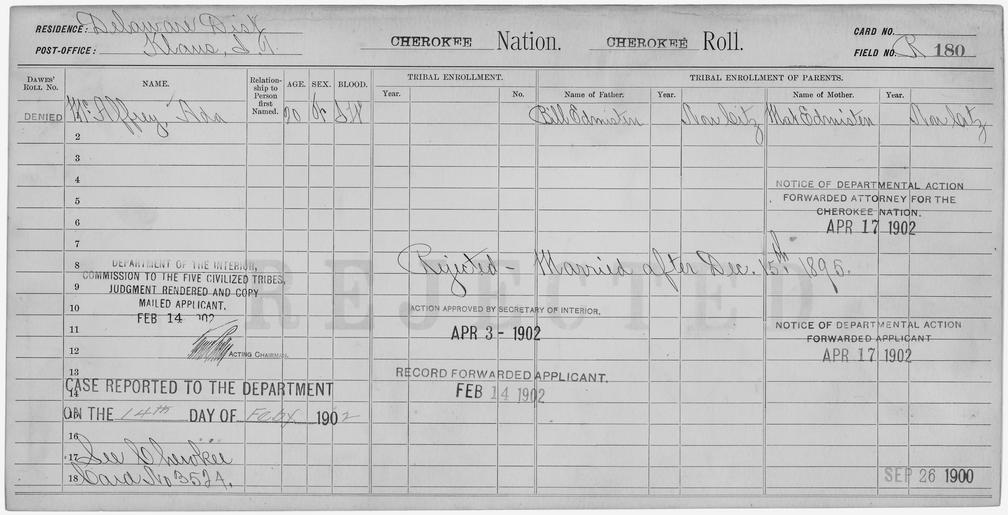 RESIDENCE: Delaware Dist
POST-OFFICE: I.T.
CHEROKEE Nation. CHEROKEE Roll.
CARD NO.
FIELD NO. R 180
DAWES' ROLL NO. NAME. Relationship to Person first Named. AGE. SEX. BLOOD. TRIBAL ENROLLMENT. TRIBAL ENROLLMENT OF PARENTS.
Year. No. Name of Father. Year. Name of Mother. Year.
DENIED McAffrey Ada 20 IW Bill Edmisten Non Citz Mat Edmisten Non Citz
2
3
4
5
6
7
8
9
10
11
12
13
14
16
17
18
NOTICE OF DEPARTMENTAL ACTION
FORWARDED ATTORNEY FOR THE
CHEROKEE NATION.
APR 17 1902
Rejected - Married after Dec. 15th 1895.
REJECTED
DEPARTMENT OF THE INTERIOR,
COMMISSION TO THE FIVE CIVILIZED TRIBES,
JUDGMENT RENDERED AND COPY
MAILED APPLICANT.
FEB 14 1902
ACTING CHAIRMAN.
ACTION APPROVED BY SECRETARY OF INTERIOR.
APR 3 - 1902
NOTICE OF DEPARTMENTAL ACTION
FORWARDED APPLICANT
APR 17 1902
RECORD FORWARDED APPLICANT.
FEB 14 1902
CASE REPORTED TO THE DEPARTMENT
ON THE 14th DAY OF Feby 1902
See Cherokee
Card No 3524.
SEP 26 1900